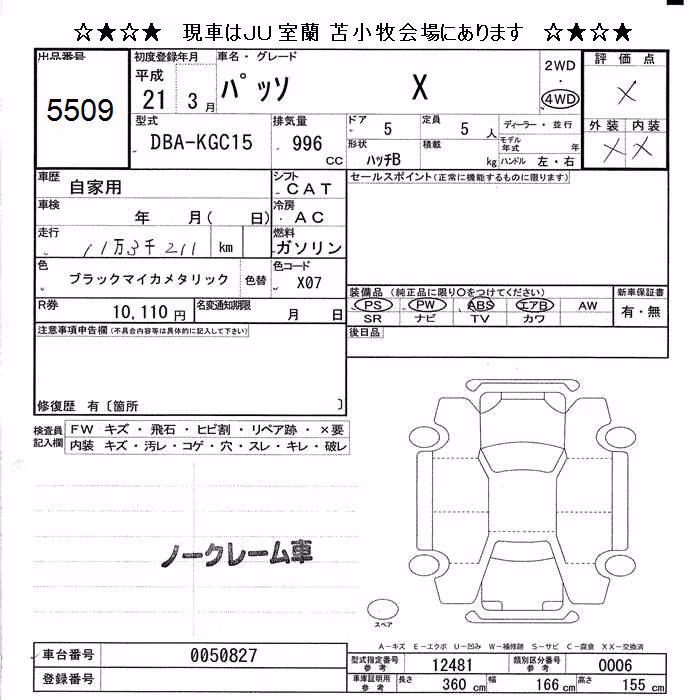 ☆★☆★ 現車はJU室蘭 苫小牧会場にあります ☆★☆★
出品番号
5509
初度登録年月
平成
21 3 月
車名・グレード
パッソ X
2WD
・
4WD
評価点
×
外装 内装
× ×
型式
DBA-KGC15
排気量
996 CC
ドア 5
定員 5 人
ディーラー・並行
モデル年式 年
形状 ハッチB
積載 kg
ハンドル 左・右
車歴 自家用
シフト CAT
セールスポイント(正常に機能するものに限ります)
車検 年 月( 日)
冷房 AC
走行 11万3千211 km
燃料 ガソリン
色 ブラックマイカメタリック 色替
色コード X07
装備品(純正品に限り○をつけてください)
新車保証書
PS PW ABS エアB AW
有・無
SR ナビ TV カワ
R券 10,110 円
名変通知期限 月 日
注意事項申告欄(不具合内容等は具体的に記入して下さい)
後日品
修復歴 有〔箇所 〕
検査員記入欄
FW キズ・飛石・ヒビ割・リペア跡・×要
内装 キズ・汚レ・コゲ・穴・スレ・キレ・破レ
ノークレーム車
スペア
A-キズ E-エクボ U-凹み W-補修跡 S-サビ C-腐食 XX-交換済
車台番号 0050827
登録番号
型式指定番号参考 12481
類別区分番号参考 0006
車庫証明用参考 長さ 360 cm 幅 166 cm 高さ 155 cm